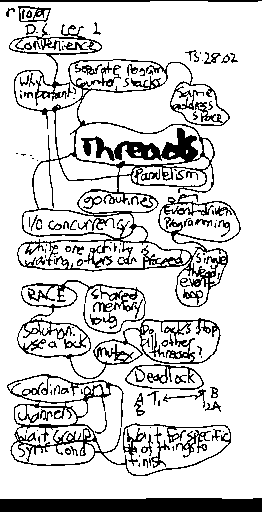 D.S Lec 2
Convenience
TS:28:02
Why
important?
Separate program
counter, stacks
Same
address
space
Threads
Parallelism
goroutines
I/O concurrency
Event-driven
Programming
While one activity is
waiting, others can proceed
Single
thread,
event
loop
RACE
Shared
memory
bug
Solution:
use a lock
mutex
Do locks stop
all other
threads?
Deadlock
Coordination
channels
A T1
B
B
T2A
Wait Group
Sync Cond
Wait for specific
of things to
finish